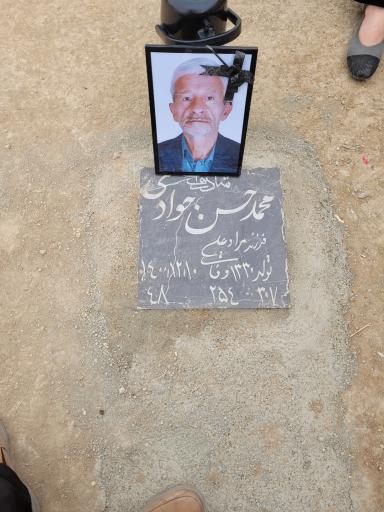 شادروان
محمد حسن جوادی
فرزند مراد علی
تولد ۱۳۳۰ وفات ۱۴۰۰/۱۲/۱۰
۳۰۷ ۲۵۴ ۴۸